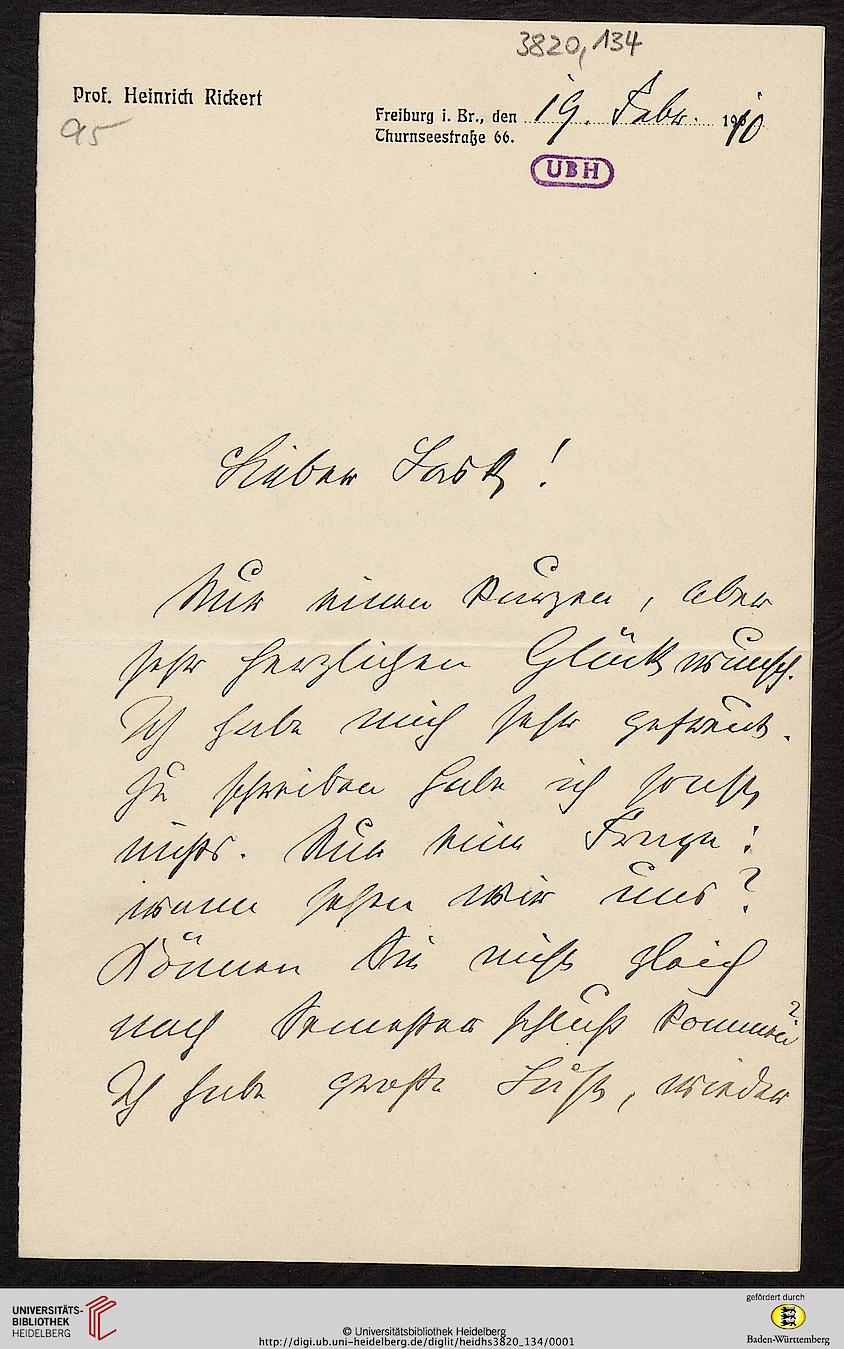 3820, 134
Prof. Heinrich Rickert
95
Freiburg i. Br., den 19. Febr. 1910
Thurnseestraße 66.
UBH
Lieber Lask!
Nur einen kurzen, aber
sehr herzlichen Glückwunsch.
Ich habe mich sehr gefreut.
Zu schreiben habe ich sonst
nichts. Nur eine Frage:
wann sehen wir uns?
Können Sie nicht gleich
nach Semesterschluß kommen?
Ich habe große Lust, wieder
UNIVERSITÄTS-
BIBLIOTHEK
HEIDELBERG
© Universitätsbibliothek Heidelberg
http://digi.ub.uni-heidelberg.de/diglit/heidhs3820_134/0001
gefördert durch
Baden-Württemberg